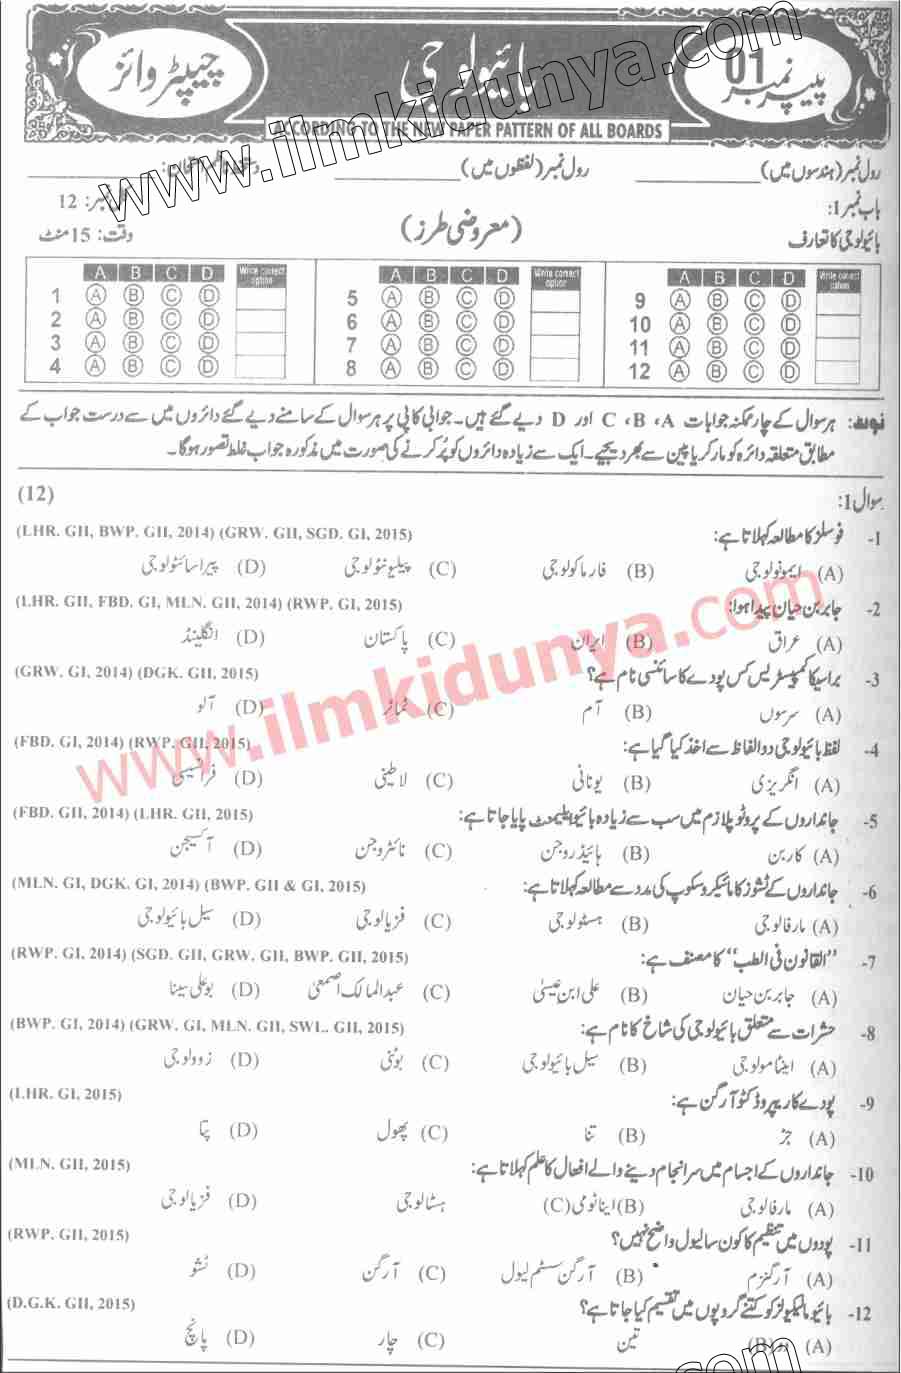 پیپر نمبر 01
بائیولوجی
چیپٹر وائز
ACCORDING TO THE NEW PAPER PATTERN OF ALL BOARDS
www.ilmkidunya.com
رول نمبر (ہندسوں میں) ____________ رول نمبر (لفظوں میں) ____________
باب نمبر 1: نمبر: 12
بائیولوجی کا تعارف (معروضی طرز) وقت: 15 منٹ
A B C D Write correct option A B C D Write correct option A B C D Write correct option
1 A B C D 5 A B C D 9 A B C D
2 A B C D 6 A B C D 10 A B C D
3 A B C D 7 A B C D 11 A B C D
4 A B C D 8 A B C D 12 A B C D
نوٹ: ہر سوال کے چار ممکنہ جوابات A، B، C اور D دیے گئے ہیں۔ جوابی کاپی پر ہر سوال کے سامنے دیے گئے دائروں میں سے درست جواب کے
مطابق متعلقہ دائرہ کو مارکر یا پین سے بھر دیجیے۔ ایک سے زیادہ دائروں کو پُر کرنے کی صورت میں مذکورہ جواب غلط تصور ہوگا۔
سوال 1: (12)
1- فوسلز کا مطالعہ کہلاتا ہے: (LHR. GII, BWP. GII, 2014) (GRW. GII, SGD. GI, 2015)
(A) ایمیونولوجی (B) فارماکولوجی (C) پیلیونٹولوجی (D) پیراسائٹولوجی
2- جابر بن حیان پیدا ہوا: (LHR. GII, FBD. GI, MLN. GII, 2014) (RWP. GI, 2015)
(A) عراق (B) ایران (C) پاکستان (D) انگلینڈ
3- براسیکا کمپیسٹریس کس پودے کا سائنسی نام ہے؟ (GRW. GI, 2014) (DGK. GII, 2015)
(A) سرسوں (B) آم (C) ٹماٹر (D) آلو
4- لفظ بائیولوجی دو الفاظ سے اخذ کیا گیا ہے: (FBD. GI, 2014) (RWP. GII, 2015)
(A) انگریزی (B) یونانی (C) لاطینی (D) فرانسیسی
5- جانداروں کے پروٹوپلازم میں سب سے زیادہ بائیو ایلیمنٹ پایا جاتا ہے: (FBD. GII, 2014) (LHR. GII, 2015)
(A) کاربن (B) ہائیڈروجن (C) نائٹروجن (D) آکسیجن
6- جانداروں کے ٹشوز کا مائیکروسکوپ کی مدد سے مطالعہ کہلاتا ہے: (MLN. GI, DGK. GI, 2014) (BWP. GII & GI, 2015)
(A) مارفالوجی (B) ہسٹولوجی (C) فزیالوجی (D) سیل بائیولوجی
7- "القانون فی الطب" کا مصنف ہے: (RWP. GI, 2014) (SGD. GII, GRW. GII, BWP. GII, 2015)
(A) جابر بن حیان (B) علی ابن عیسیٰ (C) عبدالمالک اصمعی (D) بو علی سینا
8- حشرات سے متعلق بائیولوجی کی شاخ کا نام ہے: (BWP. GI, 2014) (GRW. GI, MLN. GII, SWL. GII, 2015)
(A) اینٹامولوجی (B) سیل بائیولوجی (C) بوٹنی (D) زوولوجی
9- پودے کا ریپروڈکٹو آرگن ہے: (LHR. GI, 2015)
(A) جڑ (B) تنا (C) پھول (D) پتا
10- جانداروں کے اجسام میں سرانجام دینے والے افعال کا علم کہلاتا ہے: (MLN. GII, 2015)
(A) مارفالوجی (B) اینا ٹومی (C) ہسٹالوجی (D) فزیالوجی
11- پودوں میں تنظیم کا کون سا لیول واضح نہیں؟ (RWP. GII, 2015)
(A) آرگنزم (B) آرگن سسٹم لیول (C) آرگن (D) ٹشو
12- بائیو مالیکیولز کو کتنے گروپوں میں تقسیم کیا جاتا ہے؟ (D.G.K. GII, 2015)
(A) دو (B) تین (C) چار (D) پانچ
www.ilmkidunya.com